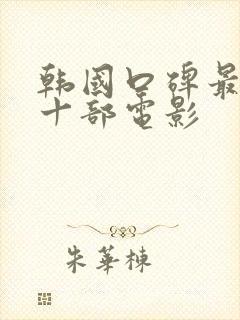 韩国口碑最
十部电影
朱華棟